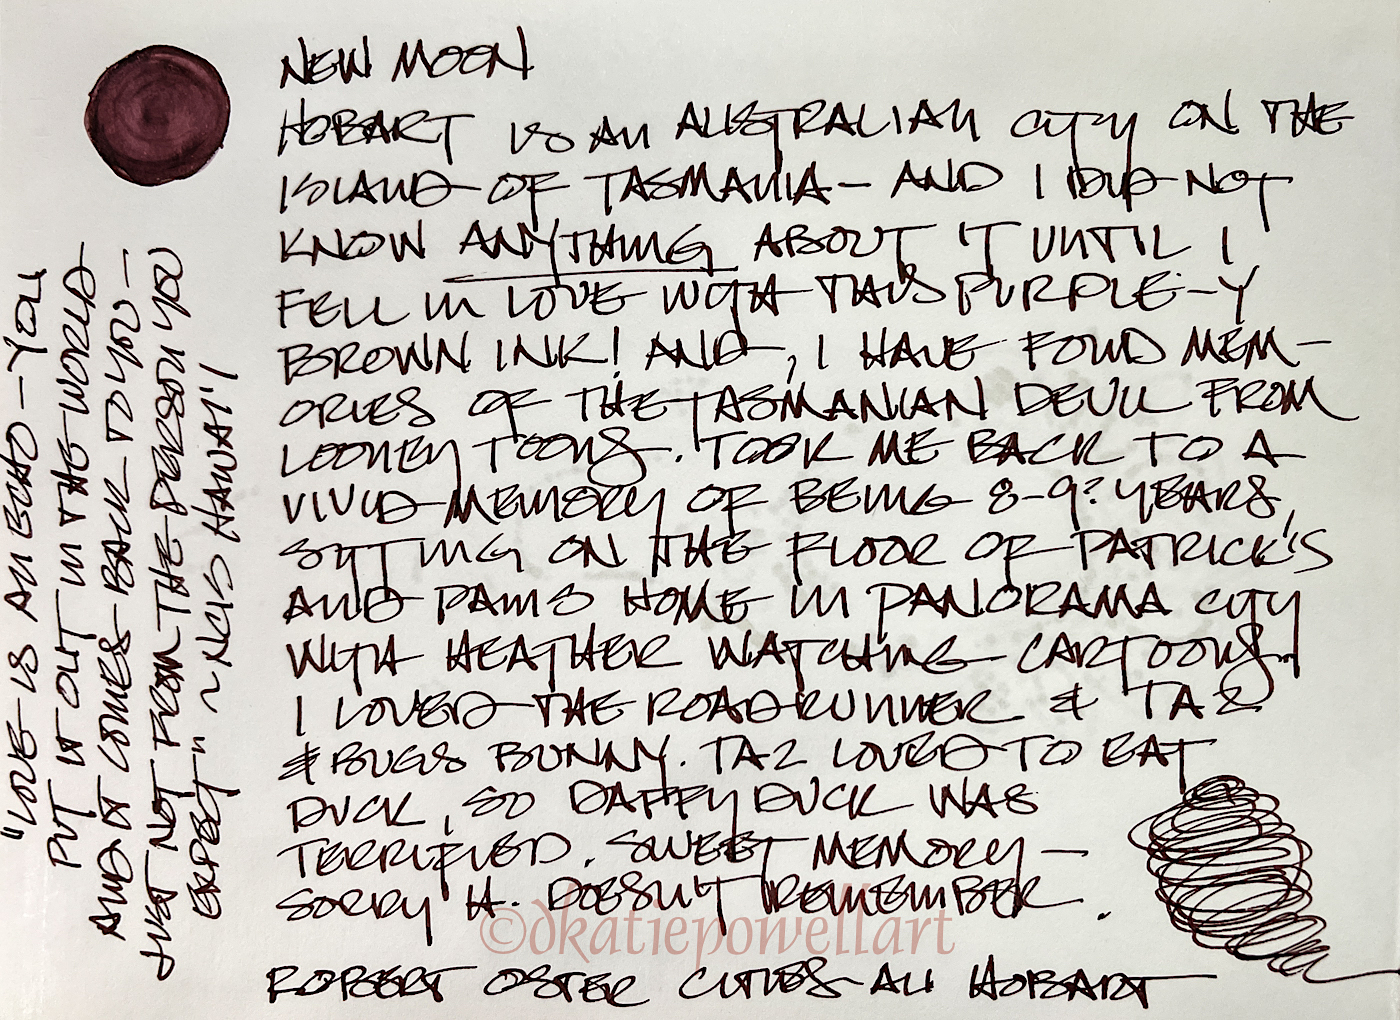 NEW MOON
HOBART IS AN AUSTRALIAN CITY ON THE
ISLAND OF TASMANIA – AND I DID NOT
KNOW ANYTHING ABOUT IT UNTIL I
FELL IN LOVE WITH THIS PURPLE-Y
BROWN INK! AND, I HAVE FOUD MEM-
ORIES OF THE TASMANIAN DEVIL FROM
LOONEY TOONS. TOOK ME BACK TO A
VIVID MEMORY OF BEING 8-9? YEARS,
SITTING ON THE FLOOR OF PATRICK'S
AND PAMS HOME IN PANORAMA CITY
WITH HEATHER WATCHING CARTOONS.
I LOVED THE ROADRUNNER & TAZ
& BUGS BUNNY. TAZ LOVED TO EAT
DUCK, SO DAFFY DUCK WAS
TERRIFIED. SWEET MEMORY –
SORRY H. DOESN'T REMEMBER.
©dkatiepowellart
ROBERT OSTER CITIES-AU HOBART
"LOVE IS AN ECHO – YOU
PUT IT OUT IN THE WORLD
AND IT COMES BACK TO YOU –
JUST NOT FROM THE PERSON YOU
EXPECT" ~ NCIS HAWAI'I